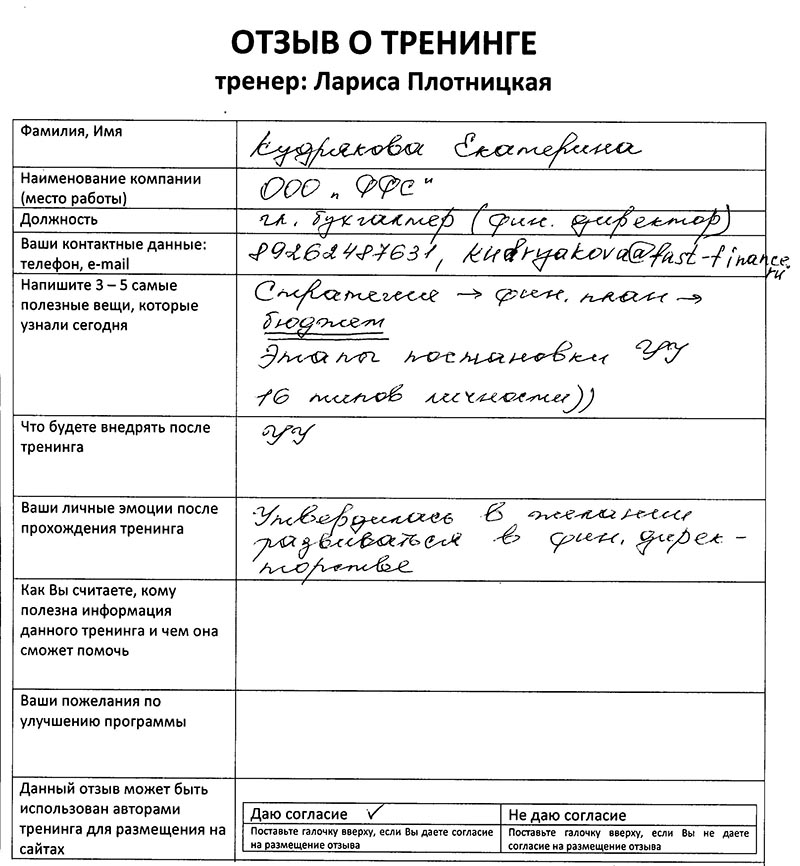 ОТЗЫВ О ТРЕНИНГЕ
тренер: Лариса Плотницкая
Фамилия, Имя
Кудрякова Екатерина
Наименование компании
(место работы)
ООО „ФФС"
Должность
гл. бухгалтер (фин. директор)
Ваши контактные данные:
телефон, e-mail
89262487631, kudryakova@fast-finance.
ru
Напишите 3 – 5 самые
полезные вещи, которые
узнали сегодня
Стратегия → фин. план →
бюджет
Этапы постановки УУ
16 типов личности))
Что будете внедрять после
тренинга
УУ
Ваши личные эмоции после
прохождения тренинга
Утвердилась в желании
развиваться в фин. дирек-
торстве
Как Вы считаете, кому
полезна информация
данного тренинга и чем она
сможет помочь
Ваши пожелания по
улучшению программы
Данный отзыв может быть
использован авторами
тренинга для размещения на
сайтах
Даю согласие ✓
Поставьте галочку вверху, если Вы даете согласие
на размещение отзыва
Не даю согласие
Поставьте галочку вверху, если Вы не даете
согласие на размещение отзыва